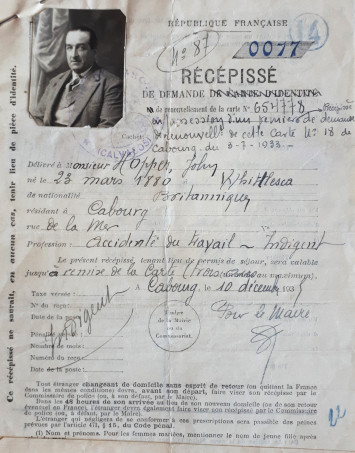 RÉPUBLIQUE FRANÇAISE
14
N° 87
0077
RÉCÉPISSÉ
DE DEMANDE DE CARTE D'IDENTITÉ
de renouvellement de la carte N° 654778
de cette Carte N° 18 de
Cabourg du 3-7-1938.
Délivré à Monsieur Hopper, John
né 23 mars 1880 à Whittlesea
de nationalité Britannique
résidant à Cabourg
rue de la Mer
Profession : accidenté du travail - Indigent
Le présent récépissé, tenant lieu de permis de séjour, sera valable
jusqu'à remise de la Carte (Trois mois au maximum).
Taxe versée :
A Cabourg, le 10 décembre 193
N° du reçu :
Date de la
Indigent
Timbre
de la Mairie
ou du
Commissariat.
Pour le Maire,
Pénalité
Numéro du reçu :
Date de la poste :
Tout étranger changeant de domicile sans esprit de retour (ou quittant la France
dans les mêmes conditions) devra, avant son départ, faire viser son récépissé par le
Commissaire de police (ou, à son défaut, par le Maire).
Dans les 48 heures de son arrivée au lieu de son nouveau domicile (ou de son retour
éventuel en France), l'étranger devra également faire viser son récépissé par le Commissaire
de police (ou, à défaut, par le Maire).
L'étranger qui négligera de se conformer à ces prescriptions sera passible des peines
prévues par l'article 471, § 15, du Code pénal.
(1) Nom et prénoms. Pour les femmes mariées, mentionner le nom de jeune fille
Ce récépissé ne saurait, en aucun cas, tenir lieu de pièce d'identité.